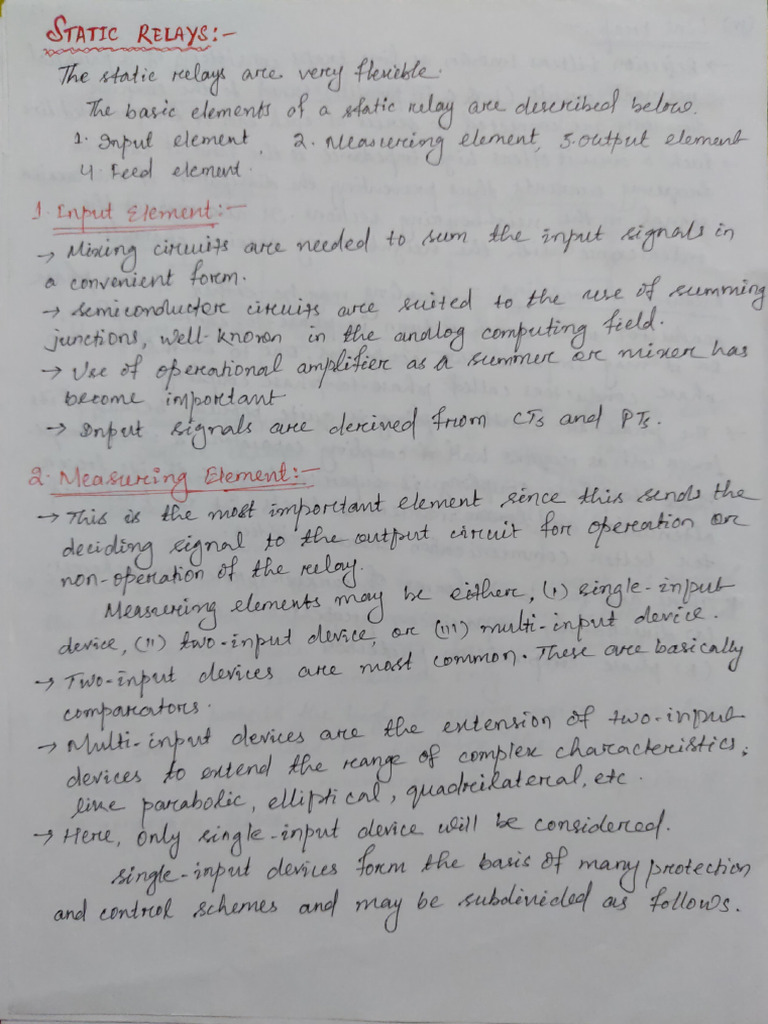 STATIC RELAYS:-
The static relays are very flexible.
The basic elements of a static relay are described below.
1. Input element, 2. Measuring element, 3. output element
4. Feed element.
1. Input Element:-
→ Mixing circuits are needed to sum the input signals in
a convenient form.
→ semiconductor circuits are suited to the use of summing
junctions, well-known in the analog computing field.
→ Use of operational amplifier as a summer or mixer has
become important
→ Input signals are derived from CTs and PTs.
2. Measuring Element:-
→ This is the most important element since this sends the
deciding signal to the output circuit for operation or
non-operation of the relay.
Measuring elements may be either, (i) single-input
device, (ii) two-input device, or (iii) multi-input device.
→ Two-input devices are most common. These are basically
comparators.
→ Multi-input devices are the extension of two-input
devices to extend the range of complex characteristics,
like parabolic, elliptical, quadrilateral, etc.
→ Here, only single-input device will be considered.
single-input devices form the basis of many protection
and control schemes and may be subdivided as follows.